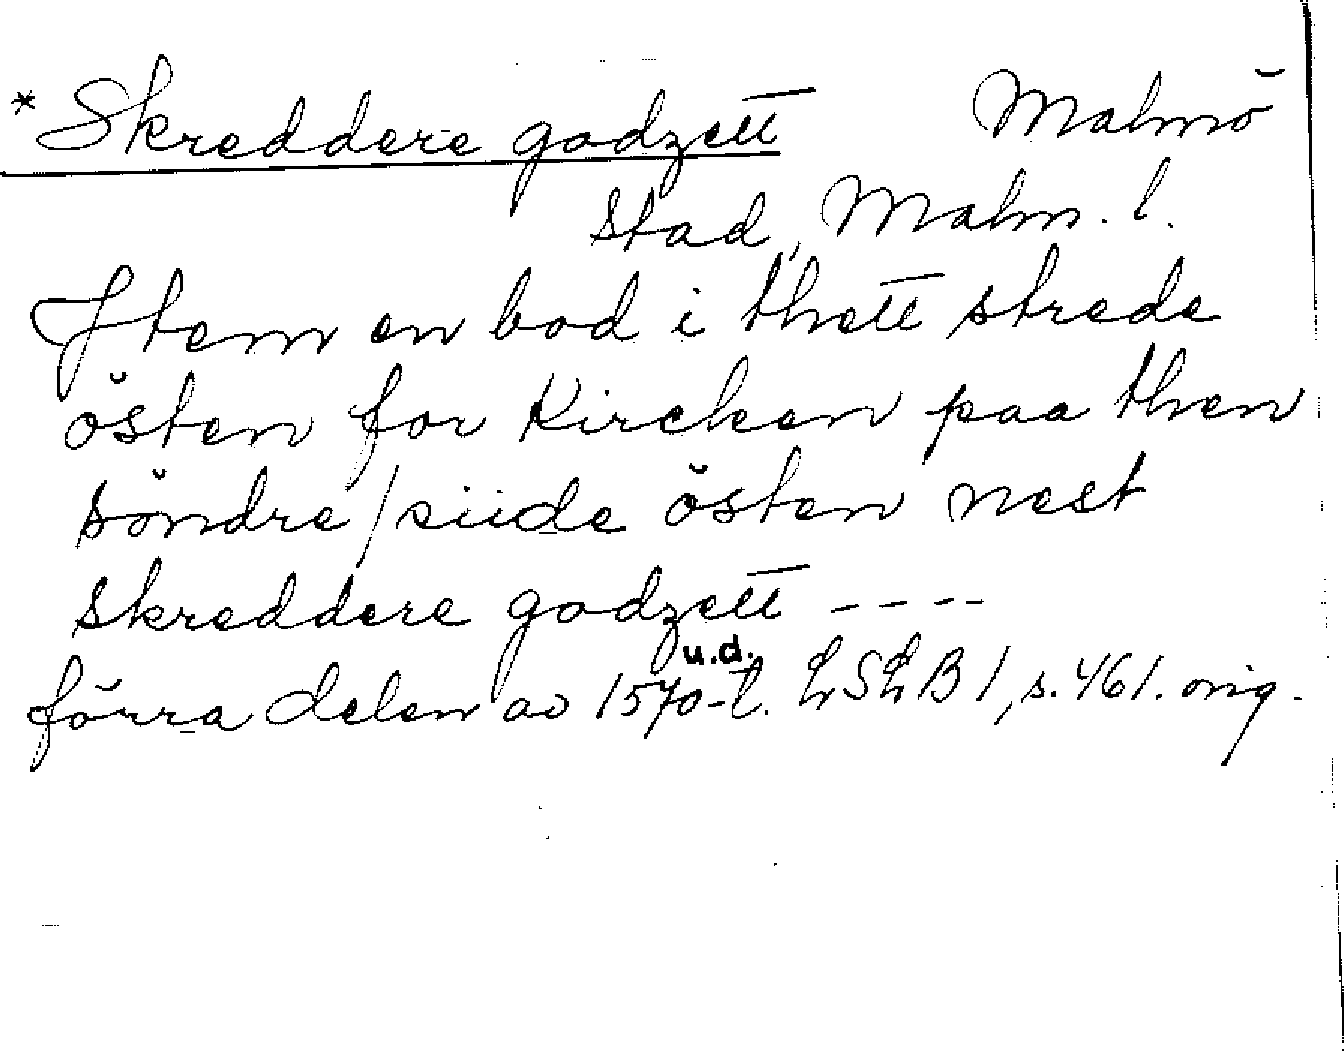 * Skreddere godzett Malmö
stad, Malm. l.
Jtem en bod i thett strede
östen for Kircken paa then
söndre / siide östen nest
skreddere godzett ----
u.d.
förra delen av 1570-t. LSLB 1, s. 461. orig.